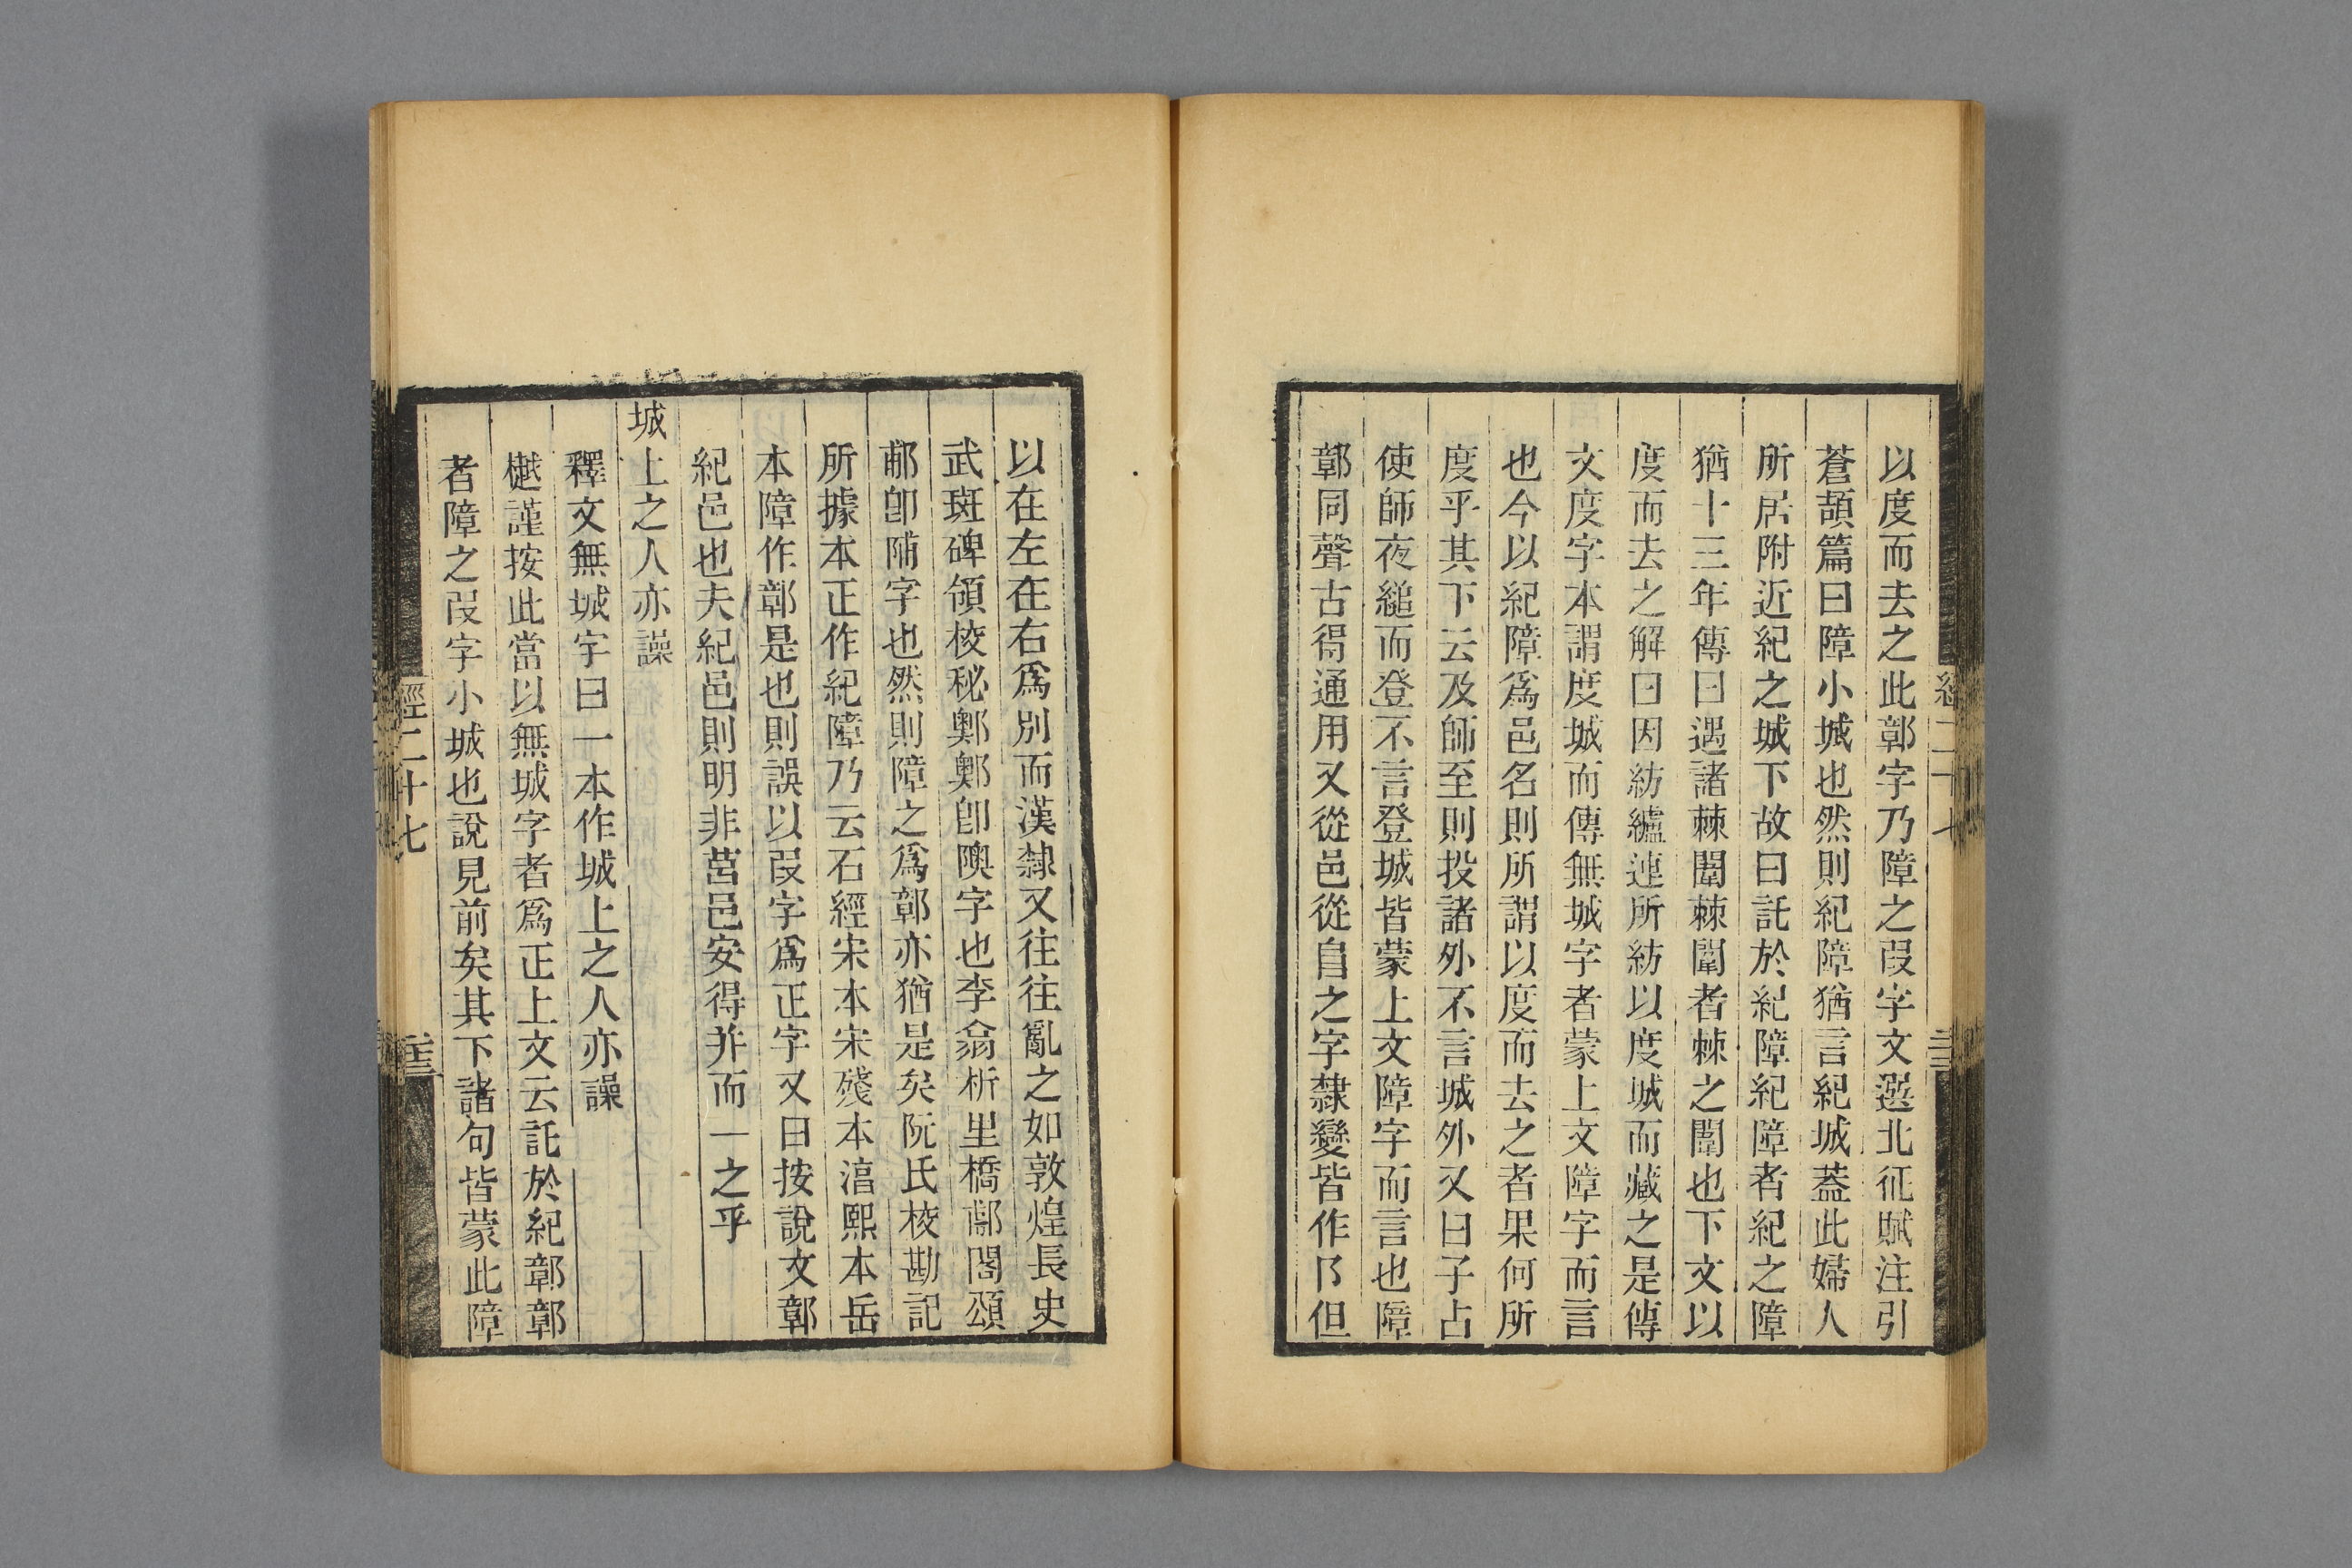 以度而去之此鄣字乃障之叚字文選北征賦注引
蒼頡篇曰障小城也然則紀障猶言紀城葢此婦人
所居附近紀之城下故曰託於紀障紀障者紀之障
猶十三年傳曰遇諸棘闈棘闈者棘之闈也下文以
度而去之解曰因紡纑連所紡以度城而藏之是傳
文度字本謂度城而傳無城字者蒙上文障字而言
也今以紀障爲邑名則所謂以度而去之者果何所
度乎其下云及師至則投諸外不言城外又曰子占
使師夜縋而登不言登城皆蒙上文障字而言也障
鄣同聲古得通用又從邑從𨸏之字隸變皆作阝但
經二十七
以在左在右爲別而漢隸又往往亂之如敦煌長史
武斑碑領校秘鄓鄓卽隩字也李翕析里橋郙閣頌
郙卽陠字也然則障之爲鄣亦猶是矣阮氏校勘記
所據本正作紀障乃云石經宋本宋殘本淳熙本岳
本障作鄣是也則誤以叚字爲正字又曰按說文鄣
紀邑也夫紀邑則明非莒邑安得并而一之乎
城上之人亦譟
釋文無城字曰一本作城上之人亦譟
樾謹按此當以無城字者爲正上文云託於紀鄣鄣
者障之叚字小城也說見前矣其下諸句皆蒙此障
經二十七